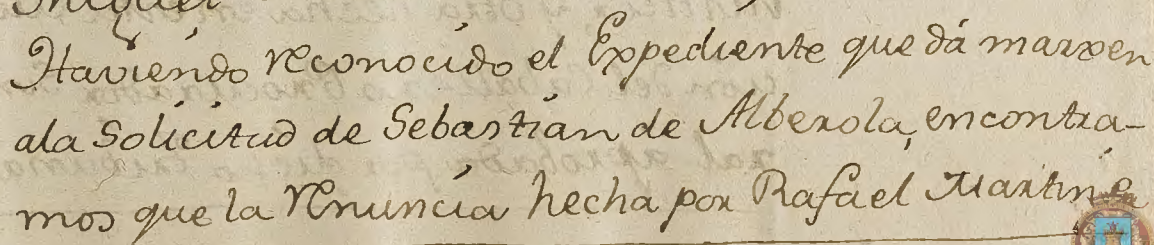 Miguel
Haviendo reconocido el Expediente que dá marxen
ala Solicitud de Sebastian de Alberola, encontra-
mos que la renuncia hecha por Rafael Martine